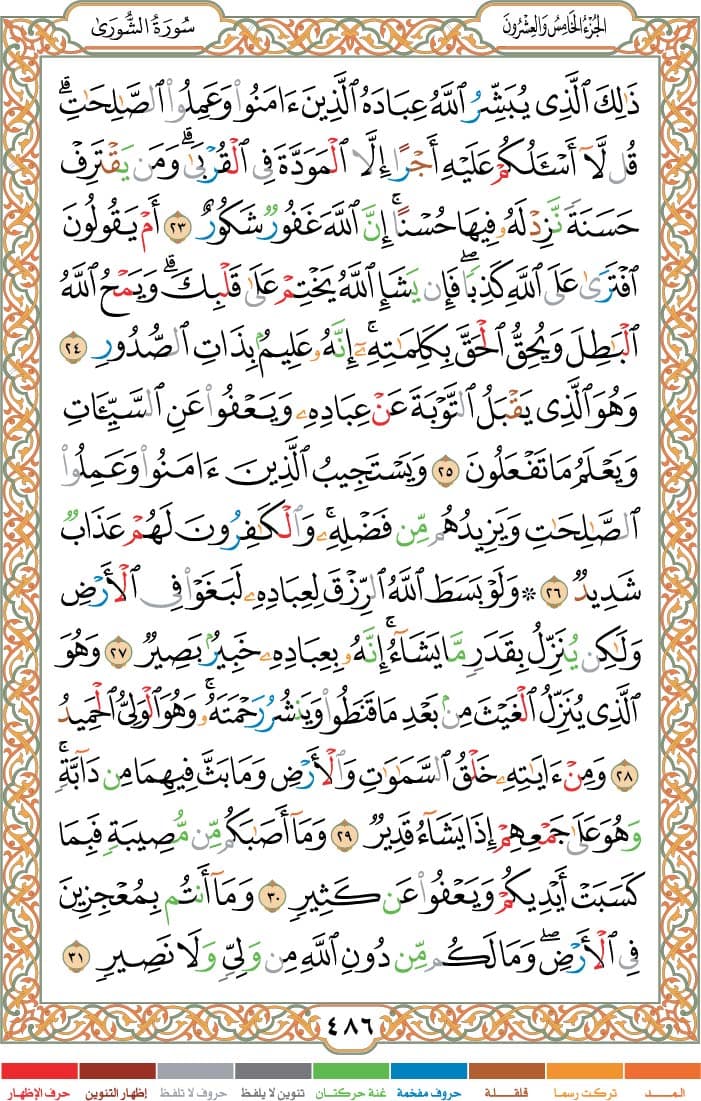 الجزء الخامس والعشرون
سورة الشورى
ذَٰلِكَ ٱلَّذِى يُبَشِّرُ ٱللَّهُ عِبَادَهُ ٱلَّذِينَ ءَامَنُوا۟ وَعَمِلُوا۟ ٱلصَّـٰلِحَـٰتِ ۗ
قُل لَّآ أَسْـَٔلُكُمْ عَلَيْهِ أَجْرًا إِلَّا ٱلْمَوَدَّةَ فِى ٱلْقُرْبَىٰ ۗ وَمَن يَقْتَرِفْ
حَسَنَةً نَّزِدْ لَهُۥ فِيهَا حُسْنًا ۚ إِنَّ ٱللَّهَ غَفُورٌ شَكُورٌ ٢٣ أَمْ يَقُولُونَ
ٱفْتَرَىٰ عَلَى ٱللَّهِ كَذِبًا ۖ فَإِن يَشَإِ ٱللَّهُ يَخْتِمْ عَلَىٰ قَلْبِكَ ۗ وَيَمْحُ ٱللَّهُ
ٱلْبَـٰطِلَ وَيُحِقُّ ٱلْحَقَّ بِكَلِمَـٰتِهِۦٓ ۚ إِنَّهُۥ عَلِيمٌۢ بِذَاتِ ٱلصُّدُورِ ٢٤
وَهُوَ ٱلَّذِى يَقْبَلُ ٱلتَّوْبَةَ عَنْ عِبَادِهِۦ وَيَعْفُوا۟ عَنِ ٱلسَّيِّـَٔاتِ
وَيَعْلَمُ مَا تَفْعَلُونَ ٢٥ وَيَسْتَجِيبُ ٱلَّذِينَ ءَامَنُوا۟ وَعَمِلُوا۟
ٱلصَّـٰلِحَـٰتِ وَيَزِيدُهُم مِّن فَضْلِهِۦ ۚ وَٱلْكَـٰفِرُونَ لَهُمْ عَذَابٌ
شَدِيدٌ ٢٦ ۞ وَلَوْ بَسَطَ ٱللَّهُ ٱلرِّزْقَ لِعِبَادِهِۦ لَبَغَوْا۟ فِى ٱلْأَرْضِ
وَلَـٰكِن يُنَزِّلُ بِقَدَرٍ مَّا يَشَآءُ ۚ إِنَّهُۥ بِعِبَادِهِۦ خَبِيرٌۢ بَصِيرٌ ٢٧ وَهُوَ
ٱلَّذِى يُنَزِّلُ ٱلْغَيْثَ مِنۢ بَعْدِ مَا قَنَطُوا۟ وَيَنشُرُ رَحْمَتَهُۥ ۚ وَهُوَ ٱلْوَلِىُّ ٱلْحَمِيدُ
٢٨ وَمِنْ ءَايَـٰتِهِۦ خَلْقُ ٱلسَّمَـٰوَٰتِ وَٱلْأَرْضِ وَمَا بَثَّ فِيهِمَا مِن دَآبَّةٍ ۚ
وَهُوَ عَلَىٰ جَمْعِهِمْ إِذَا يَشَآءُ قَدِيرٌ ٢٩ وَمَآ أَصَـٰبَكُم مِّن مُّصِيبَةٍ فَبِمَا
كَسَبَتْ أَيْدِيكُمْ وَيَعْفُوا۟ عَن كَثِيرٍ ٣٠ وَمَآ أَنتُم بِمُعْجِزِينَ
فِى ٱلْأَرْضِ ۖ وَمَا لَكُم مِّن دُونِ ٱللَّهِ مِن وَلِىٍّ وَلَا نَصِيرٍ ٣١
٤٨٦
المـــد تركت رسما قلقلة حروف مفخمة غنة حركتان تنوين لا يلفظ حروف لا تلفظ إظهار التنوين حرف الإظهار